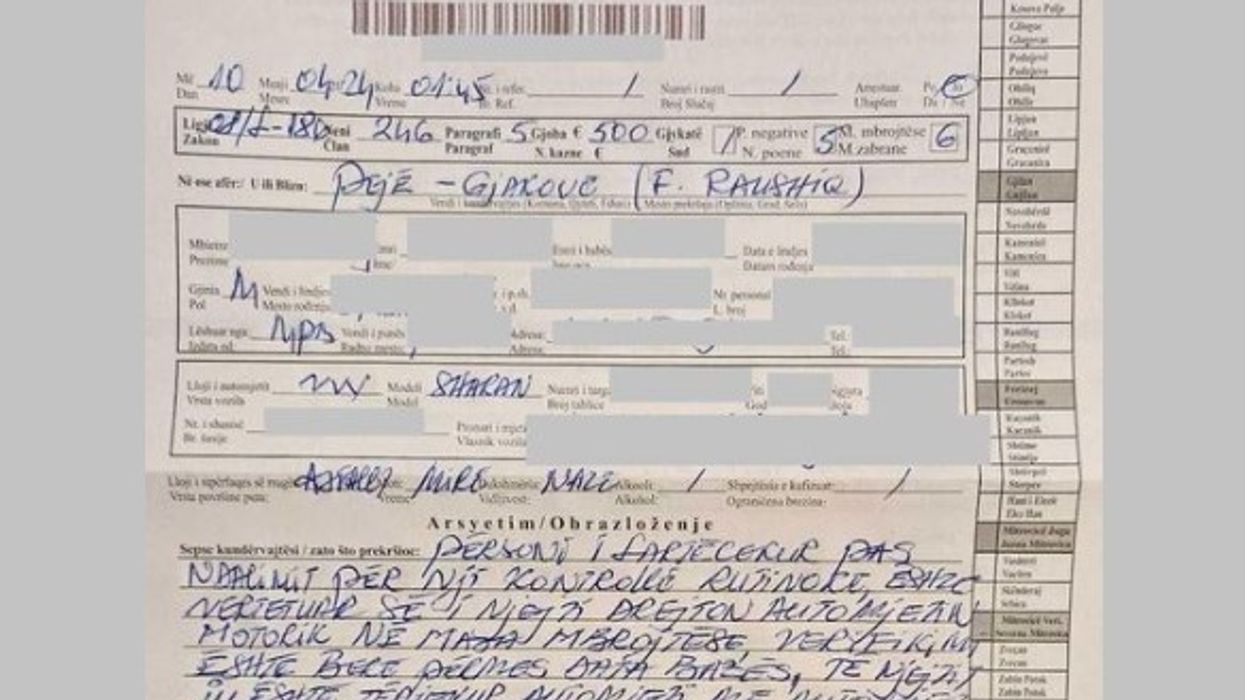 Më Dan 10 Muaji Mesec 04.24 Koha Vreme 01:45 Nr. i refer. Br. Ref. / Numri i rastit Broj Slučaj / Arrestuar Uhapšen Po/Jo Da / Ne
Ligji Zakon Neni Član 246 Paragrafi Paragraf 5 Gjoba € N. kazne € 500 Gjykatë Sud / P. negative N. poene 5 M. mbrojtëse M. zabrane 6
Në ose afër:/ U ili Blizu: PEJË - GJAKOVË (F. RAUSHIQ)
Vendi i kundërvajtjes
Mbiemri Prezime Emri Ime Emri i babës Data e lindjes Datum rođenja
Gjinia Pol M Vendi i lindjes Mesto rođenja Nr. personal L. broj
Lëshuar nga: Izdata od: MPB Vendi i punës Radno mesto: Adresa: Adresa: Tel.: Tel.:
Lloji i automjetit Vrsta vozila VW Modeli Model SHARAN Numri i targ. Broj tablice God
Nr. i shasisë Br. šasije Pronari i mjetit Vlasnik vozila
Lloji i sipërfaqes së rrugës Vrsta površine puta: ASFALT MIRË Vreme: Vidljivost: NATË Alkooli: Alkohol: / Shpejtësia e kufizuar: Ograničena brzina: /
Arsyetim/Obrazloženje
Sepse kundërvajtësi / zato što prekršioc: PERSONI I LARTËCEKUR PAS
NDALIMIT PËR NJË KONTROLLË RUTINORE, ËSHTË
VËRTETUAR SE I NJEJTI DREJTON AUTOMJETIN
MOTORIK NË MASA MBROJTËSE, VERIFIKIMI
ËSHTË BËRË PËRMES DATA BAZËS, TË NJEJTIT
I ËSHTË TËRHEQUR AUTOMJETI ME
Kosova Polje
Gllogoc
Glogovac
Podujevë
Podujevo
Obiliq
Obilić
Lipjan
Lipljan
Graçanicë
Gracanica
Gjilan
Gnjilane
Novobërdë
Novobrdo
Kamenicë
Kamenica
Viti
Vitina
Kllokot
Klokot
Ranillug
Ranilug
Partesh
Parteš
Ferizaj
Uroševac
Kaçanik
Kačanik
Shtime
Štimlje
Shtërpcë
Štrpce
Hani i Elezit
Elez Han
Mitrovicë Jugu
Južna Mitrovica
Vushtrri
Vučitrn
Skënderaj
Srbica
Mitrovicë Veri.
Severna Mitrovica
Zveçan
Zvečan
Zubin Potok
Zubin Potok